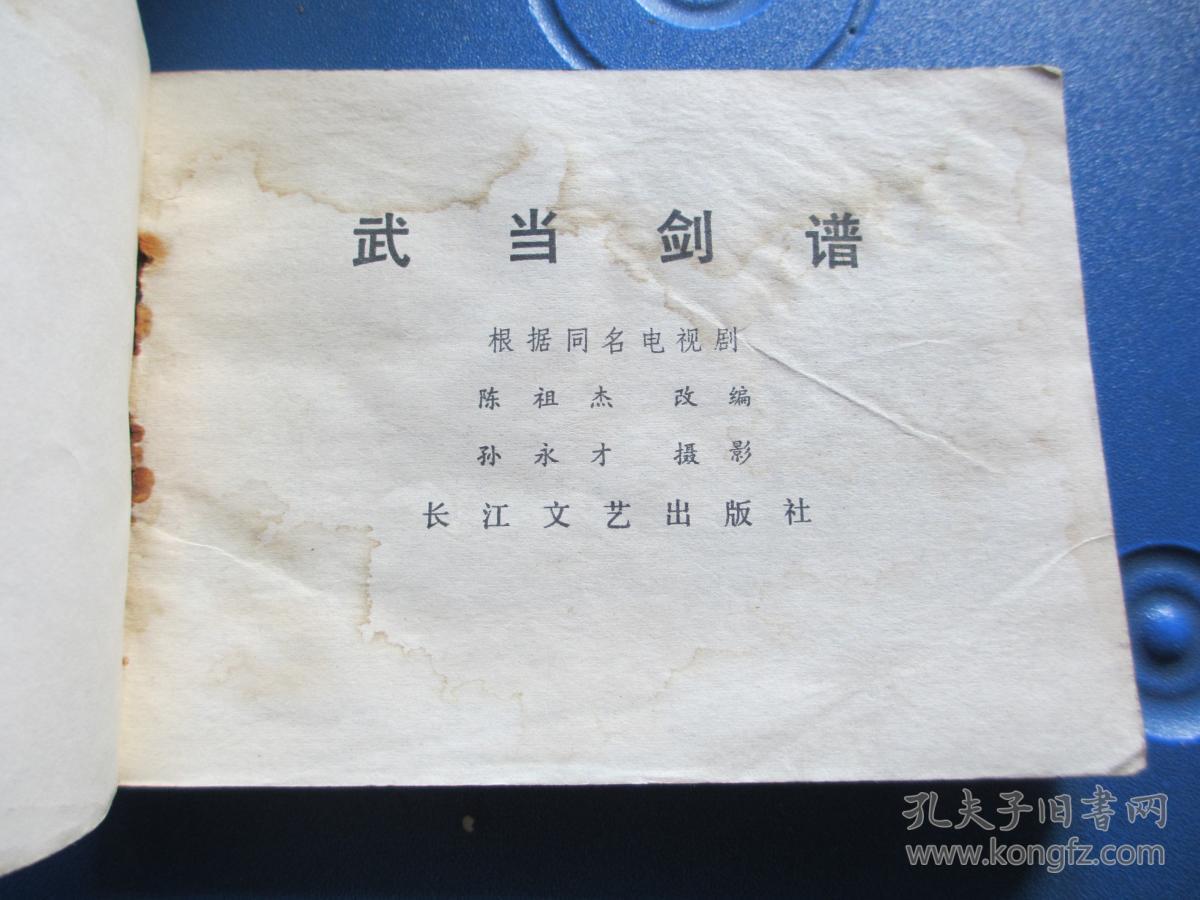 武当剑谱
根据同名电视剧
陈祖杰 改编
孙永才 摄影
长江文艺出版社
孔夫子旧書网
www.kongfz.com